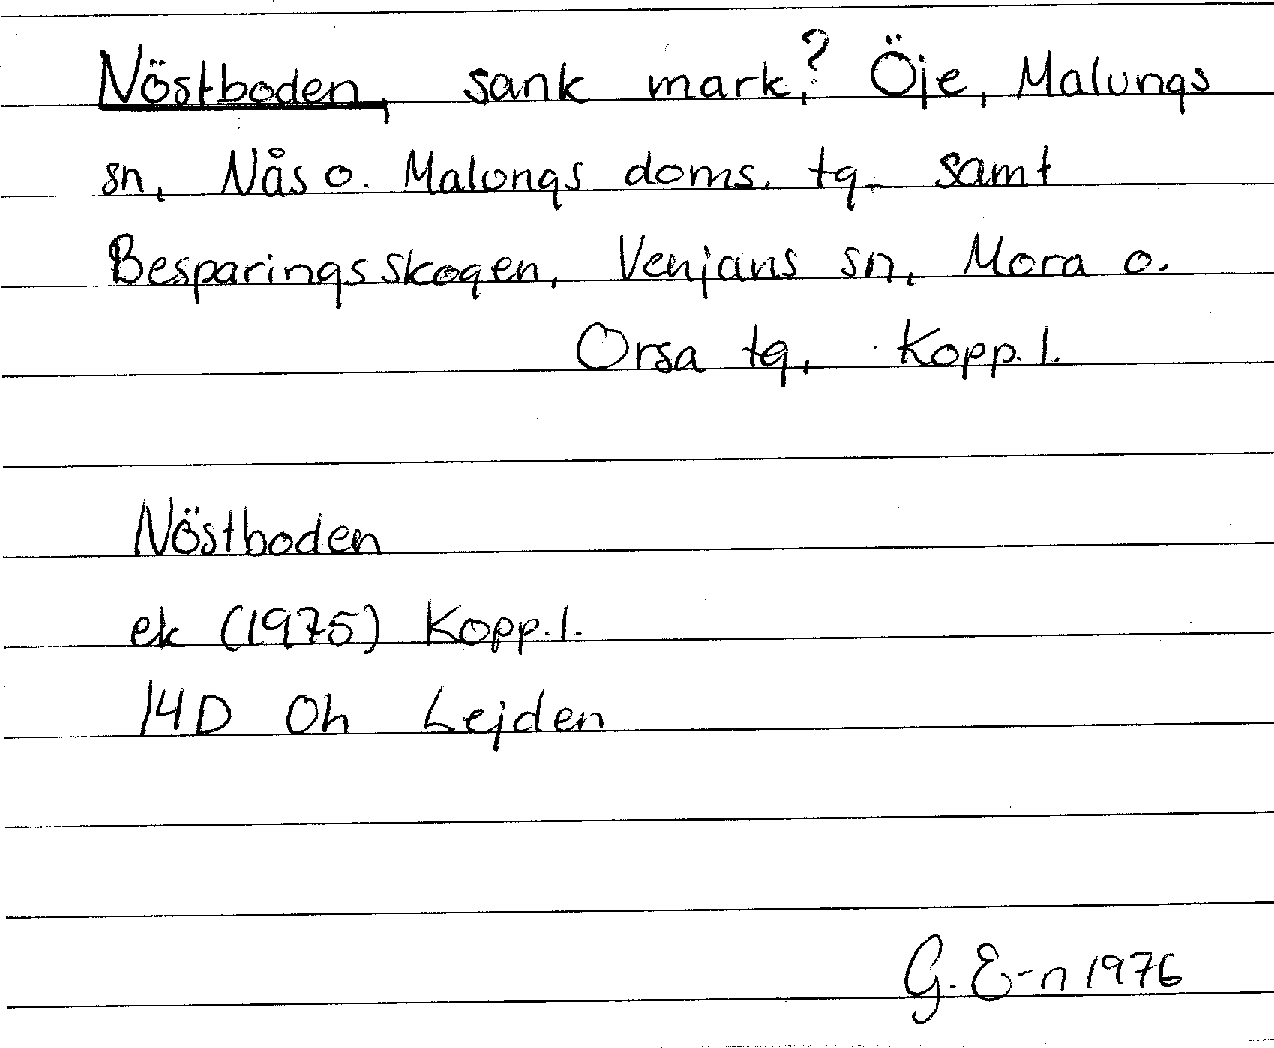 Nöstboden, sank mark,? Öje, Malungs
sn, Nås o. Malungs doms. tg. samt
Besparingsskogen, Venjans sn, Mora o.
Orsa tg, Kopp. l.
Nöstboden
ek (1975) Kopp. l.
14D 0h Lejden
G. E-n 1976